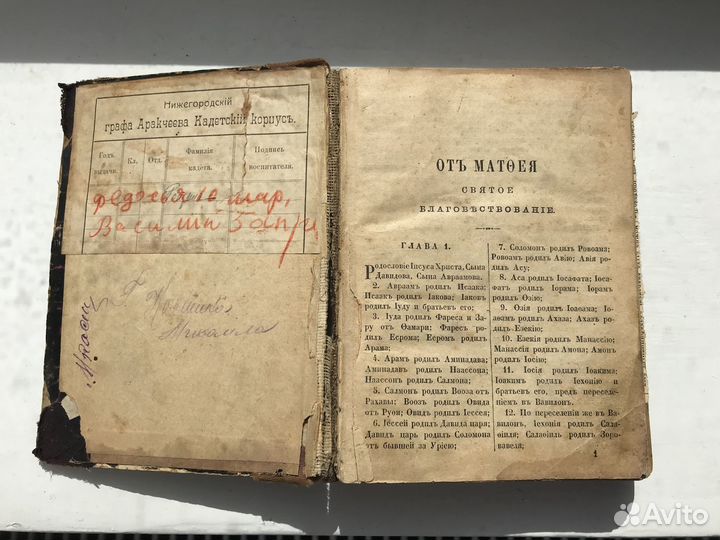 Нижегородскій
графа Аракчеева Кадетскій корпусъ.
Годъ выдачи.
Кл.
Отд.
Фамилія кадета.
Подпись воспитателя.
Федосья 10 мар,
Василий 5 апр
ОТЪ МАТѲЕЯ
СВЯТОЕ
БЛАГОВѢСТВОВАНІЕ.
ГЛАВА 1.
Родословіе Іисуса Христа, Сына
Давидова, Сына Авраамова.
2. Авраамъ родилъ Исаака;
Исаакъ родилъ Іакова; Іаковъ
родилъ Іуду и братьевъ его;
3. Іуда родилъ Фареса и За-
ру отъ Ѳамари; Фаресъ ро-
дилъ Есрома; Есромъ родилъ
Арама;
4. Арамъ родилъ Аминадава;
Аминадавъ родилъ Наассона;
Наассонъ родилъ Салмона;
5. Салмонъ родилъ Вооза отъ
Рахавы; Воозъ родилъ Овида
отъ Руѳи; Овидъ родилъ Іессея;
6. Іессей родилъ Давида царя;
Давидъ царь родилъ Соломона
отъ бывшей за Уріею;
7. Соломонъ родилъ Ровоама;
Ровоамъ родилъ Авію; Авія ро-
дилъ Асу;
8. Аса родилъ Іосафата; Іоса-
фатъ родилъ Іорама; Іорамъ
родилъ Озію;
9. Озія родилъ Іоаѳама; Іоа-
ѳамъ родилъ Ахаза; Ахазъ ро-
дилъ Езекію;
10. Езекія родилъ Манассію;
Манассія родилъ Амона; Амонъ
родилъ Іосію;
11. Іосія родилъ Іоакима;
Іоакимъ родилъ Іехонію и
братьевъ его, предъ переселе-
ніемъ въ Вавилонъ.
12. По переселеніи же въ Ва-
вилонъ, Іехонія родилъ Сала-
ѳіиля; Салаѳіиль родилъ Зоро-
вавеля;
1
Avito